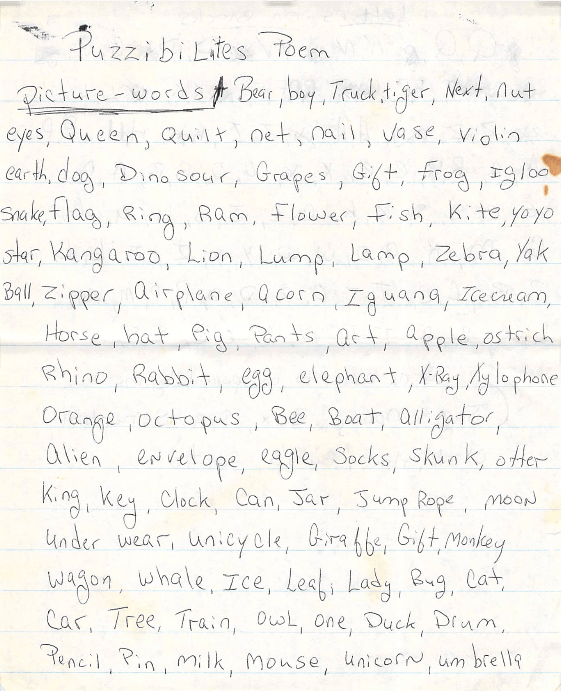 Puzzibilites Poem
Picture-words Bear, boy, Truck, tiger, Next, nut
eyes, Queen, Quilt, net, nail, vase, violin
earth, dog, Dinosour, Grapes, Gift, Frog, Igloo
snake, flag, Ring, Ram, Flower, Fish, Kite, yoyo
star, Kangaroo, Lion, Lump, Lamp, Zebra, Yak
Ball, Zipper, Airplane, Acorn, Iguana, Icecream,
Horse, hat, Pig, Pants, Art, apple, ostrich
Rhino, Rabbit, egg, elephant, X-Ray, Xylophone
Orange, octopus, Bee, Boat, alligator,
Alien, envelope, eagle, Socks, Skunk, otter
King, Key, Clock, Can, Jar, Jump Rope, moon
Under wear, unicycle, Giraffe, Gift, Monkey
wagon, whale, Ice, Leaf, Lady, Bug, Cat,
Car, Tree, Train, Owl, one, Duck, Drum,
Pencil, Pin, Milk, Mouse, Unicorn, umbrella